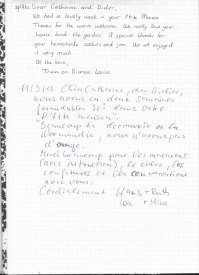 Dear Catherine and Didier,
We had a lovely week in your Petite Maison
Thanks for the warm welcome. We really love your
house and the garden. A special thanks for
your homemade cookies and jam. We all enjoyed
it very much.
All the best,
Chère Catherine, cher Didier,
nous avons eu deux semaines
formidables ici dans votre
"P'tite maison".
Beaucoup à découvrir en
Normandie, nous n'avons pas
Merci beaucoup pour les
(avec instruction), le cidre, les
confitures et les conversations
avec vous.
Cordialement + Ruth